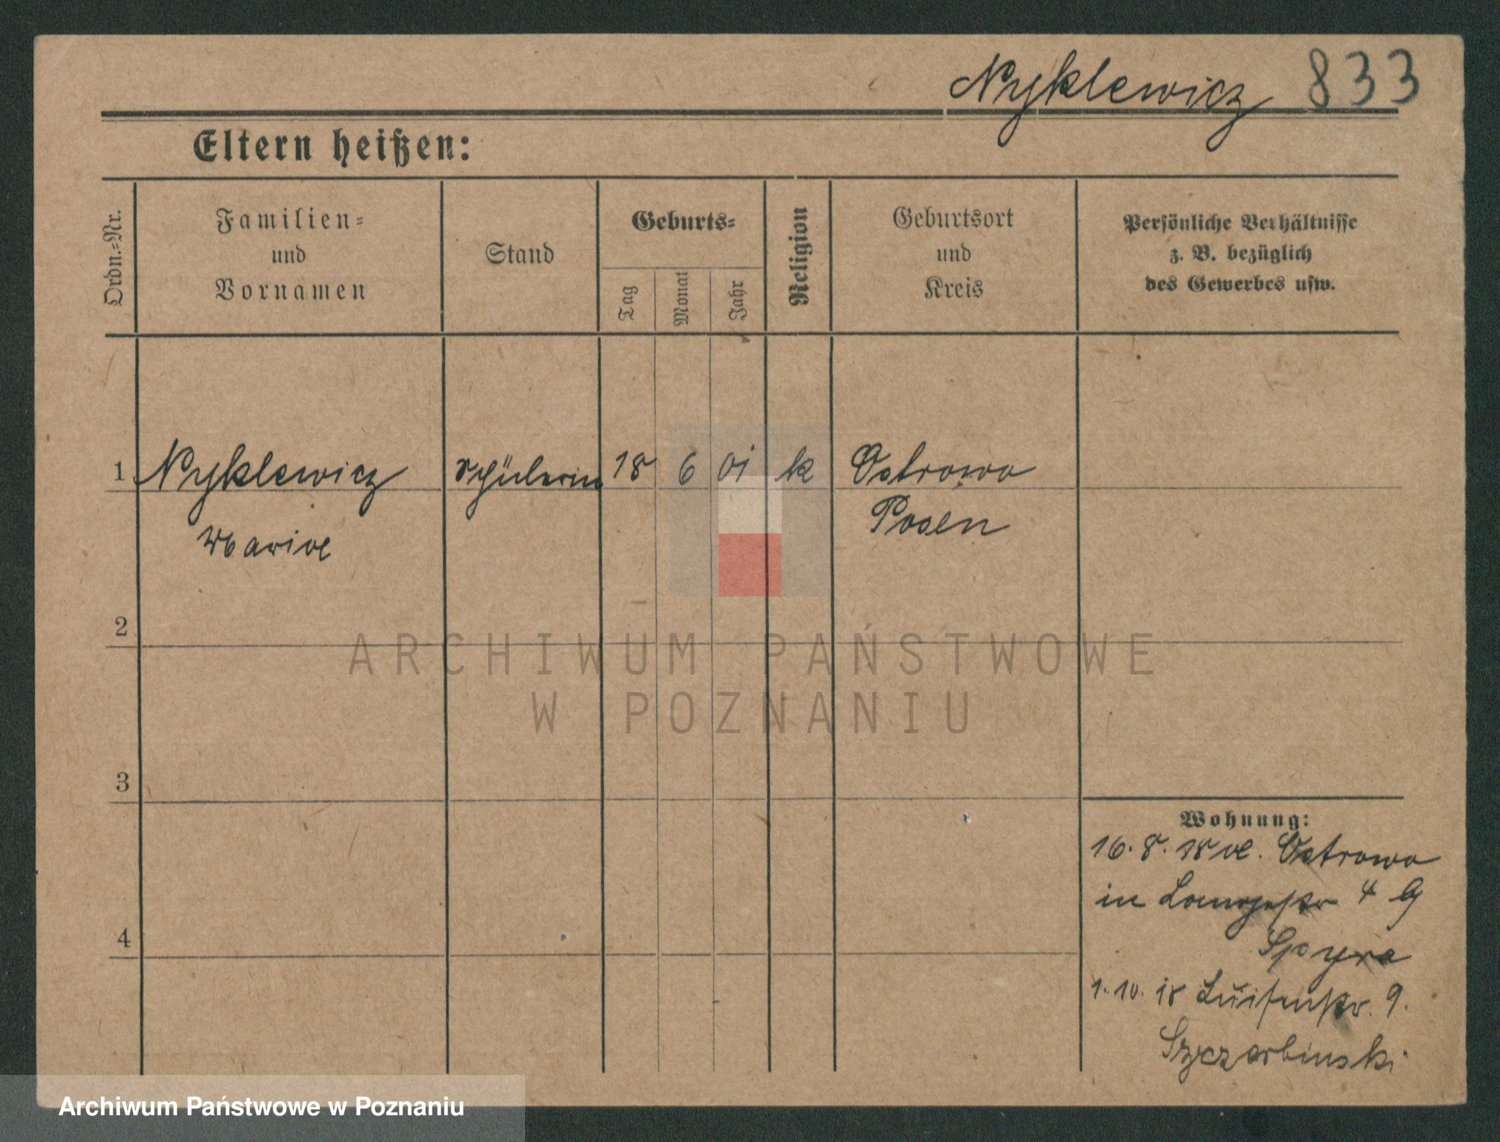 Nyklewicz 833
Eltern heißen:
Ordn.-Nr.
Familien-
und
Vornamen
Stand
Geburts-
Tag
Monat
Jahr
Religion
Geburtsort
und
Kreis
Persönliche Verhältnisse
z. B. bezüglich
des Gewerbes usw.
1 Nyklewicz Schülerin 18 6 01 k Ostrowo
Posen
2
3
4
Wohnung:
16. 8. 18 Ostrowo
in Langestr 4
Spyra
1. 10. 18 Luisenstr. 9.
Szczerbinski
ARCHIWUM PAŃSTWOWE
W POZNANIU
Archiwum Państwowe w Poznaniu